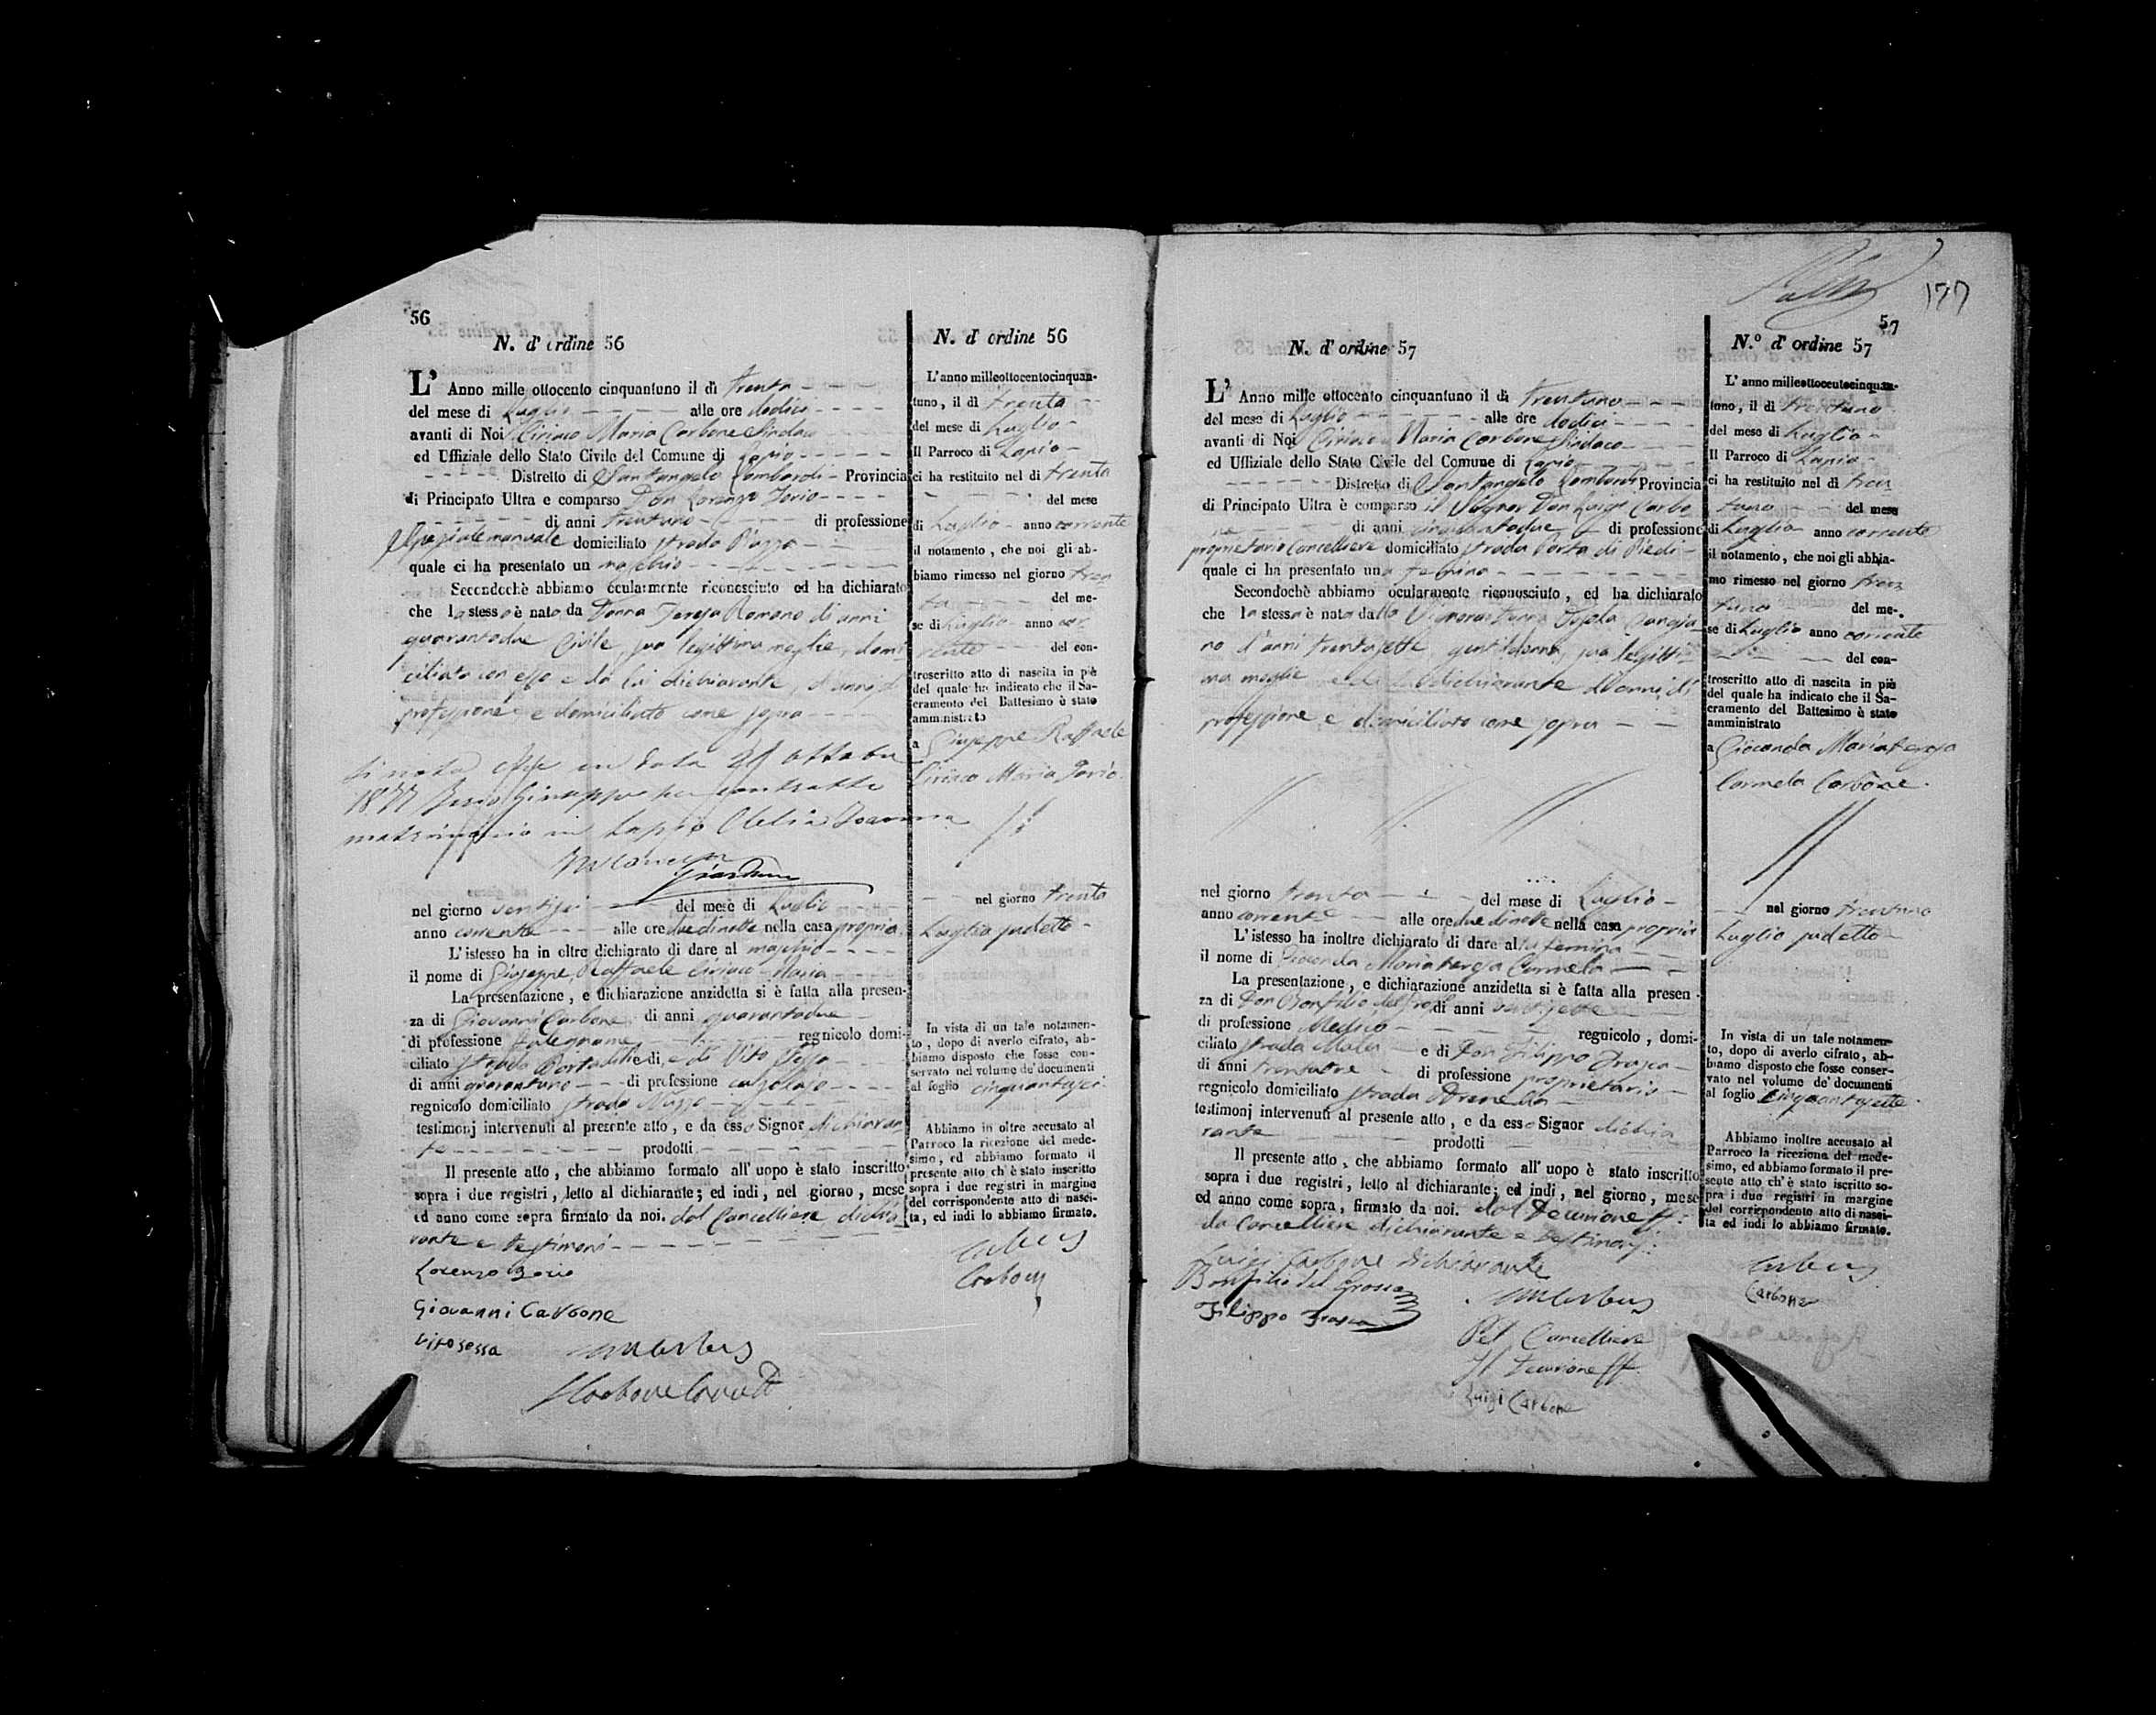 56
N. d' ordine 56
L' Anno mille ottocento cinquantuno il di trenta
del mese di Luglio alle ore dodici
avanti di Noi Ciriaco Maria Carbone Sindaco
ed Uffiziale dello Stato Civile del Comune di Lapio
Distretto di Santangelo Lombardi Provincia
di Principato Ultra e comparso Don Lorenzo Iorio
di anni trentuno di professione
Speziale manuale domiciliato strada Piazza
quale ci ha presentato un maschio
Secondochè abbiamo ocularmente riconosciuto ed ha dichiarato
che lo stesso è nato da Donna Teresa Romano di anni
quarantadue Civile, sua legittima moglie, domi
ciliata con esso e da lui dichiarante, d'anni di
professione e domiciliato come sopra
Si nota che in data 21 ottobre
1877 Iorio Giuseppe ha contratto
matrimonio in Lapio Clelia
nel giorno ventisei del mese di Luglio
anno corrente alle ore due di notte nella casa propria
L'istesso ha in oltre dichiarato di dare al maschio
il nome di Giuseppe Raffaele Ciriaco Maria
La presentazione, e dichiarazione anzidetta si è fatta alla presen-
za di Giovanni Carbone di anni quarantadue
di professione Falegname regnicolo domi-
ciliato strada Porta di Piedi, e di Vito Sessa
di anni quarantuno di professione calzolajo
regnicolo domiciliato strada
testimonj intervenuti al presente atto, e da esso Signor dichiaran
te prodotti
Il presente atto, che abbiamo formato all' uopo è stato inscritto
sopra i due registri, letto al dichiarante; ed indi, nel giorno, mese
ed anno come sopra firmato da noi. dal Cancelliere dichia
rante e testimoni
Lorenzo Iorio
Giovanni Carbone
Vito Sessa
N. d' ordine 56
L'anno milleottocentocinquan-
tuno, il di trenta
del mese di Luglio
Il Parroco di Lapio
ci ha restituito nel di trenta
del mese
di Luglio anno corrente
il notamento, che noi gli ab-
biamo rimesso nel giorno tren
ta del me-
se di Luglio anno cor
rente del con-
troscritto atto di nascita in piè
del quale ha indicato che il Sa-
cramento del Battesimo è stato
amministrato
a Giuseppe Raffaele
Ciriaco Maria Iorio
nel giorno trenta
Luglio sudetto
In vista di un tale notamen-
to, dopo di averlo cifrato, ab-
biamo disposto che fosse con-
servato nel volume de' documenti
al foglio cinquantasei
Abbiamo in oltre accusato al
Parroco la ricezione del mede-
simo, ed abbiamo formato il
presente atto ch' è stato inscritto
sopra i due registri in margine
del corrispondente atto di nasci-
ta, ed indi lo abbiamo firmato.
Carbone
177
57
N. d' ordine 57
L' Anno mille ottocento cinquantuno il di trentuno
del mese di Luglio alle ore dodici
avanti di Noi Ciriaco Maria Carbone Sindaco
ed Uffiziale dello Stato Civile del Comune di Lapio
Distretto di Santangelo Lombardi Provincia
di Principato Ultra è comparso il Signor Don Luigi Carbo
ne di anni cinquantadue di professione
proprietario Cancelliere domiciliato strada Porta di Piedi
quale ci ha presentato una femina
Secondochè abbiamo ocularmente riconosciuto, ed ha dichiarato
che la stessa è nata dalla Signora Donna
no d'anni trentasette, gentildonna, sua legitti
ma moglie e da lui dichiarante d'anni di
professione e domiciliato come sopra
nel giorno trenta del mese di Luglio
anno corrente alle ore due di notte nella casa propria
L'istesso ha inoltre dichiarato di dare alla femina
il nome di Gioconda Mariateresa Carmela
La presentazione, e dichiarazione anzidetta si è fatta alla presen-
za di Don Bonfilio del Grosso di anni ventisette
di professione Medico regnicolo, domi-
ciliato strada e di Don Filippo Frasca
di anni trentatre di professione proprietario
regnicolo domiciliato strada
testimonj intervenuti al presente atto, e da esso Signor dichia
rante prodotti
Il presente atto, che abbiamo formato all' uopo è stato inscritto
sopra i due registri, letto al dichiarante; ed indi, nel giorno, mese
ed anno come sopra, firmato da noi. dal Decurione ff:
da Cancelliere dichiarante e testimonj:
Luigi Carbone dichiarante
Bonfilio del Grosso
Filippo Frasca
Pel Cancelliere
Il Decurione ff
Luigi Carbone
N.º d' ordine 57
L' anno milleottocentocinquan-
tuno, il di trentuno
del mese di Luglio
Il Parroco di Lapio
ci ha restituito nel di tren
tuno del mese
di Luglio anno corrente
il notamento, che noi gli abbia-
mo rimesso nel giorno tren
tuno del me-
se di Luglio anno corrente
del con-
troscritto atto di nascita in piè
del quale ha indicato che il Sa-
cramento del Battesimo è stato
amministrato
a Gioconda Mariateresa
Carmela Carbone.
nel giorno trentuno
Luglio sudetto
In vista di un tale notamen-
to, dopo di averlo cifrato, ab-
biamo disposto che fosse conser-
vato nel volume de' documenti
al foglio cinquantasette.
Abbiamo inoltre accusato al
Parroco la ricezione del mede-
simo, ed abbiamo formato il pre-
sente atto ch' è stato iscritto so-
pra i due registri in margine
del corrispondente atto di nasci-
ta ed indi lo abbiamo firmato.
Carbone